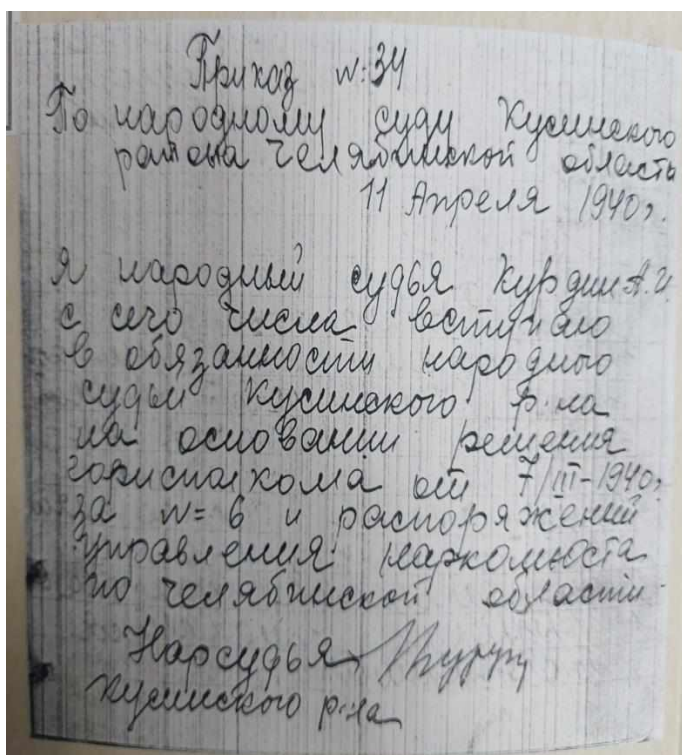 Приказ №: 34
По народному суду Кусинского
района Челябинской область
11 Апреля 1940 г.
Я народный судья Курдин А.И.
с сего числа вступаю
в обязанности народного
судьи Кусинского р-на
на основании решения
горисполкома от 7/III-1940 г.
за №= 6 и распоряжений
управления наркомюста
по Челябинской области
Нарсудья
Кусинского р-на